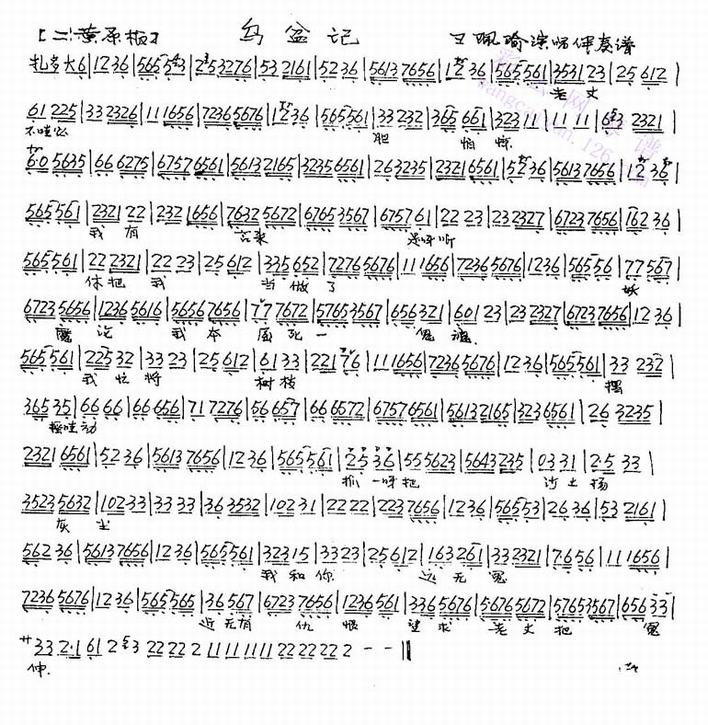 [二黄原板] 乌盆记 王珮瑜演唱伴奏谱
扎多大6|1236|565543|253276|532161|5236|56137656|1236|565561|353123|25612|
老丈
61225|332326|111656|72365676|1236|565561|33232|365661|32311|1111|63 2321|
不哇必 胆 怕 惊
6·05635|666275|67576561|56132165|32356561|263235|23216561|5236|56137656|1236|
565561|232122|2321656|76325672|67653567|675761|2223|232327|67237656|16236|
我有 言来 是呀听
565561|222321|2223|25612|335652|72765676|111656|72365676|1236|565556|77567|
你把我 当做了 妖
67235656|12365616|56567656|777672|57653567|656321|60123|232327|67237656|1236|
魔论 我本屈死一 鬼魂
565561|22532|3323|25612|6133|22176|111656|72365676|1236|565561|33232|
我忙将 树枝 摆
36535|6666|66656|717276|56657|666572|67576561|56132165|3236561|263235|
摇哇动
23216561|5236|56137656|1236|565561|2536|555623|5643235|0331|2·533|
抓一呀把 沙土扬
35235632|10233|3333|363532|10231|2222|2237656|1236|565553|2636|532161|
灰尘
56236|56137656|1236|565561|32315|3323|25612|163261|332321|7·656|111656|
我和你 远无冤
72365676|1236|565565|36567|67237656|1236561|3365676|56765672|57653567|65633|
近无有 仇恨 望求 老丈把 冤
332·16123222211111112222222--||
伸.